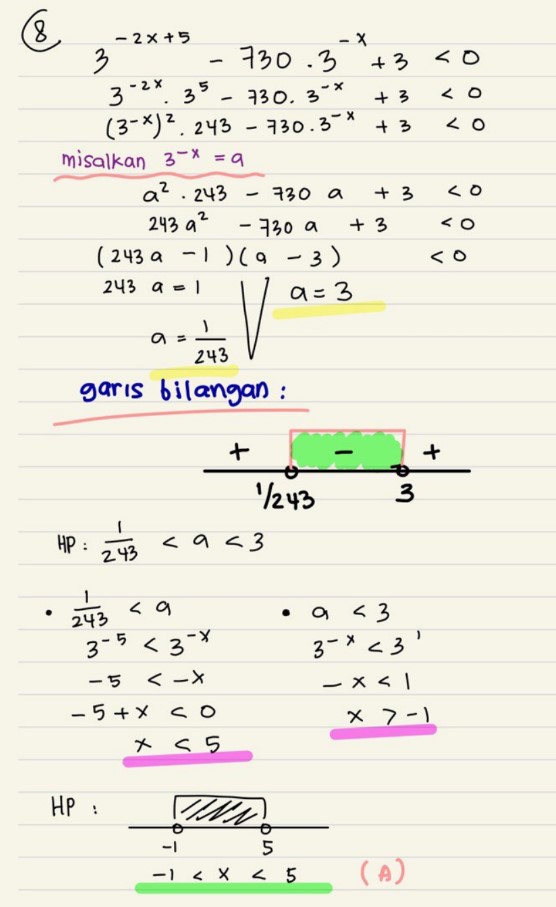 8
3^{-2x+5} - 730 . 3^{-x} + 3 < 0
3^{-2x} . 3^5 - 730 . 3^{-x} + 3 < 0
(3^{-x})^2 . 243 - 730 . 3^{-x} + 3 < 0
misalkan 3^{-x} = a
a^2 . 243 - 730 a + 3 < 0
243 a^2 - 730 a + 3 < 0
(243 a - 1)(a - 3) < 0
243 a = 1 V a = 3
a = 1/243
garis bilangan :
+ - +
1/243 3
HP : 1/243 < a < 3
• 1/243 < a • a < 3
3^{-5} < 3^{-x} 3^{-x} < 3^1
-5 < -x -x < 1
-5 + x < 0 x > -1
x < 5
HP :
-1 5
-1 < x < 5 (A)